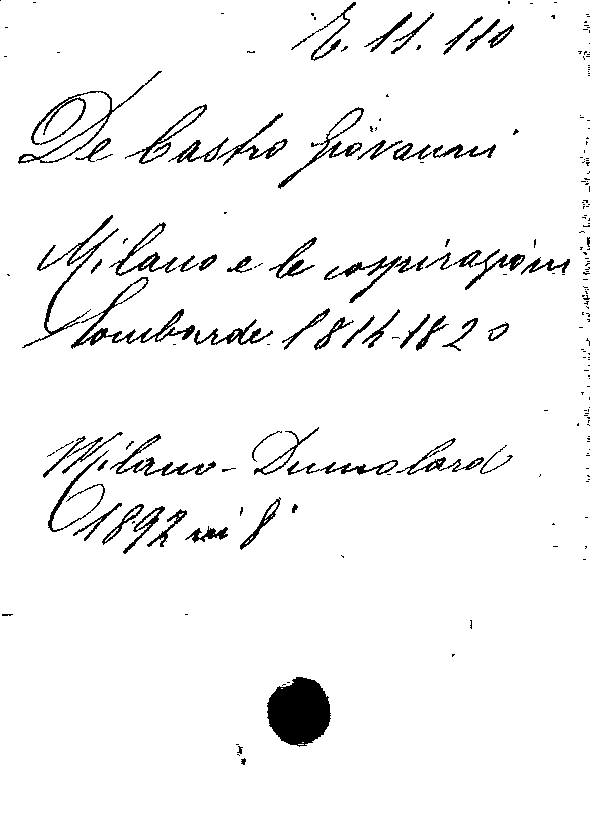 E. 11. 110
De Castro Giovanni
Milano e le cospirazioni
Lombarde 1814-1820
Milano - Dumolard
1892 in 8°